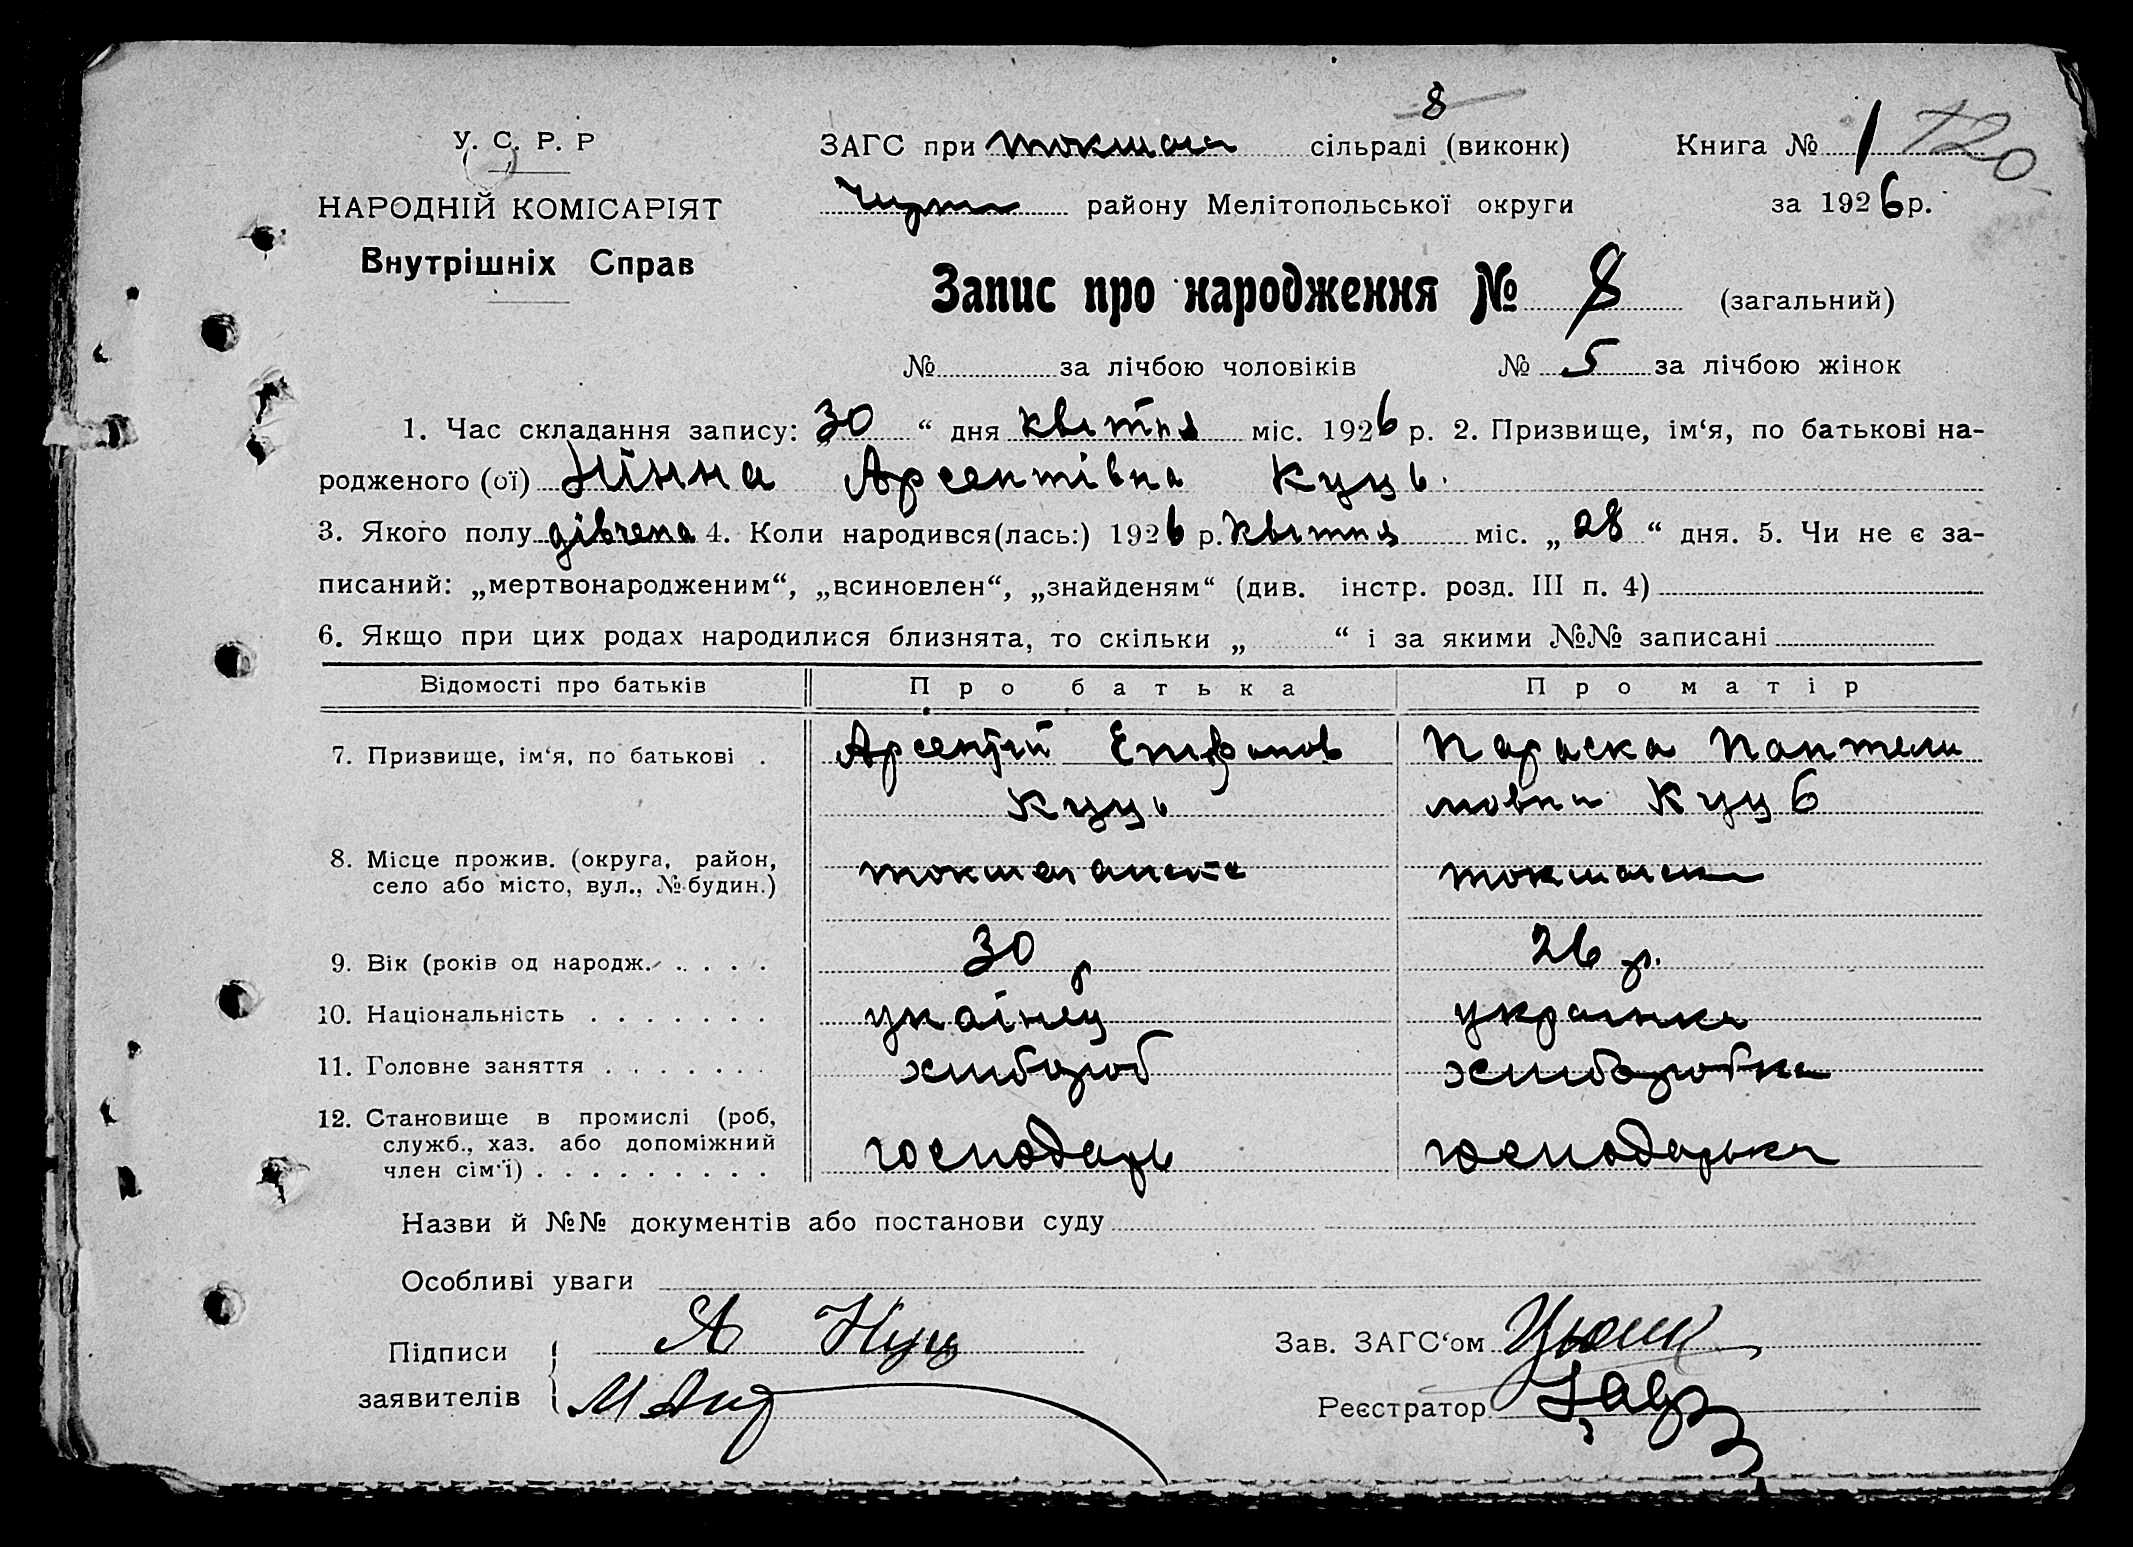 8
У. С. Р. Р
ЗАГС при сільраді (виконк)
Книга № 1 120
НАРОДНІЙ КОМІСАРІЯТ
району Мелітопольської округи
за 1926 р.
Внутрішніх Справ
Запис про народження № 8 (загальний)
№ за лічбою чоловіків № 5 за лічбою жінок
1. Час складання запису: 30 “ дня квітня міс. 1926 р. 2. Призвище, ім‘я, по батькові на-
родженого (ої) Нінна Арсентівна Куць.
3. Якого полу дівчена 4. Коли народився(лась:) 1926 р. квітня міс. „ 28 “ дня. 5. Чи не є за-
писаний: „мертвонародженим“, „всиновлен“, „знайденям“ (див. інстр. розд. III п. 4)
6. Якщо при цих родах народилися близнята, то скільки „ “ і за якими №№ записані
Відомості про батьків Про батька Про матір
7. Призвище, ім‘я, по батькові . Арсентій Епифанов Параска Пантели
Куць мовна Куць
8. Місце прожив. (округа, район,
село або місто, вул., № будин.)
9. Вік (років од народж. . . . . 30 р 26 р.
10. Національність . . . . . . . укаінец украинка
11. Головне заняття . . . . . . . хлибороб хлиборобка
12. Становище в промислі (роб,
служб., хаз. або допоміжний господарь господарька
член сім‘ї) . . . . . . . . .
Назви й №№ документів або постанови суду
Особливі уваги
Підписи А Куц
Зав. ЗАГС‘ом
заявителів
Реєстратор